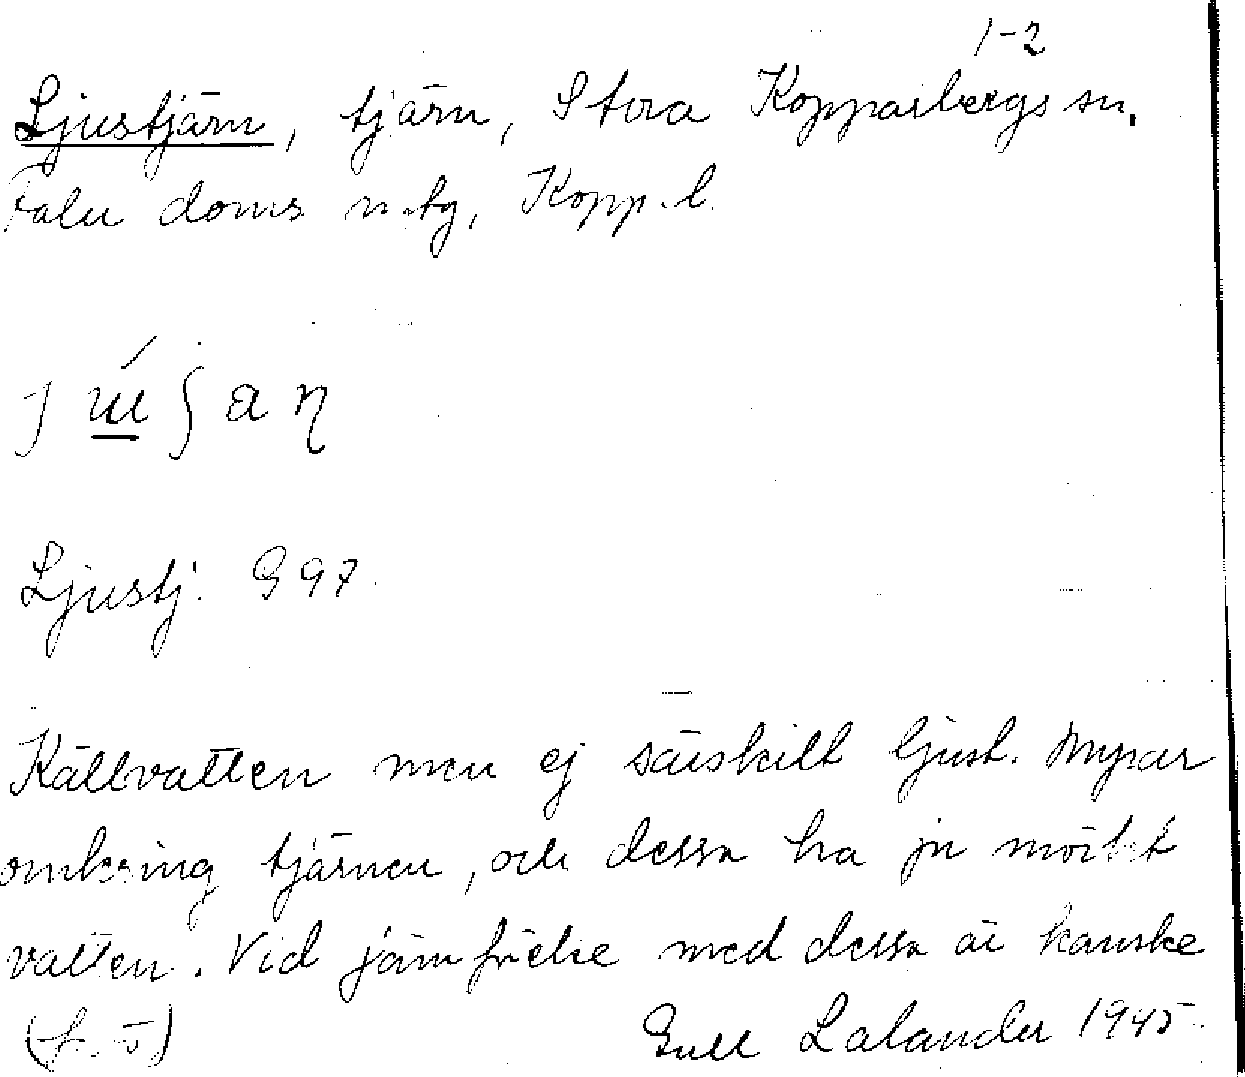 1-2
Ljustjärn, tjärn, Stora Kopparbergs sn.
Falu doms. n. tg, Kopp. l.
Ljustj. G 97
Källvatten men ej särskilt ljust. Myrar
omkring tjärnen, och dessa ha ju mörkt
vatten. Vid jämförelse med dessa är kanske
(f. ö)
Gull Lalander 1945